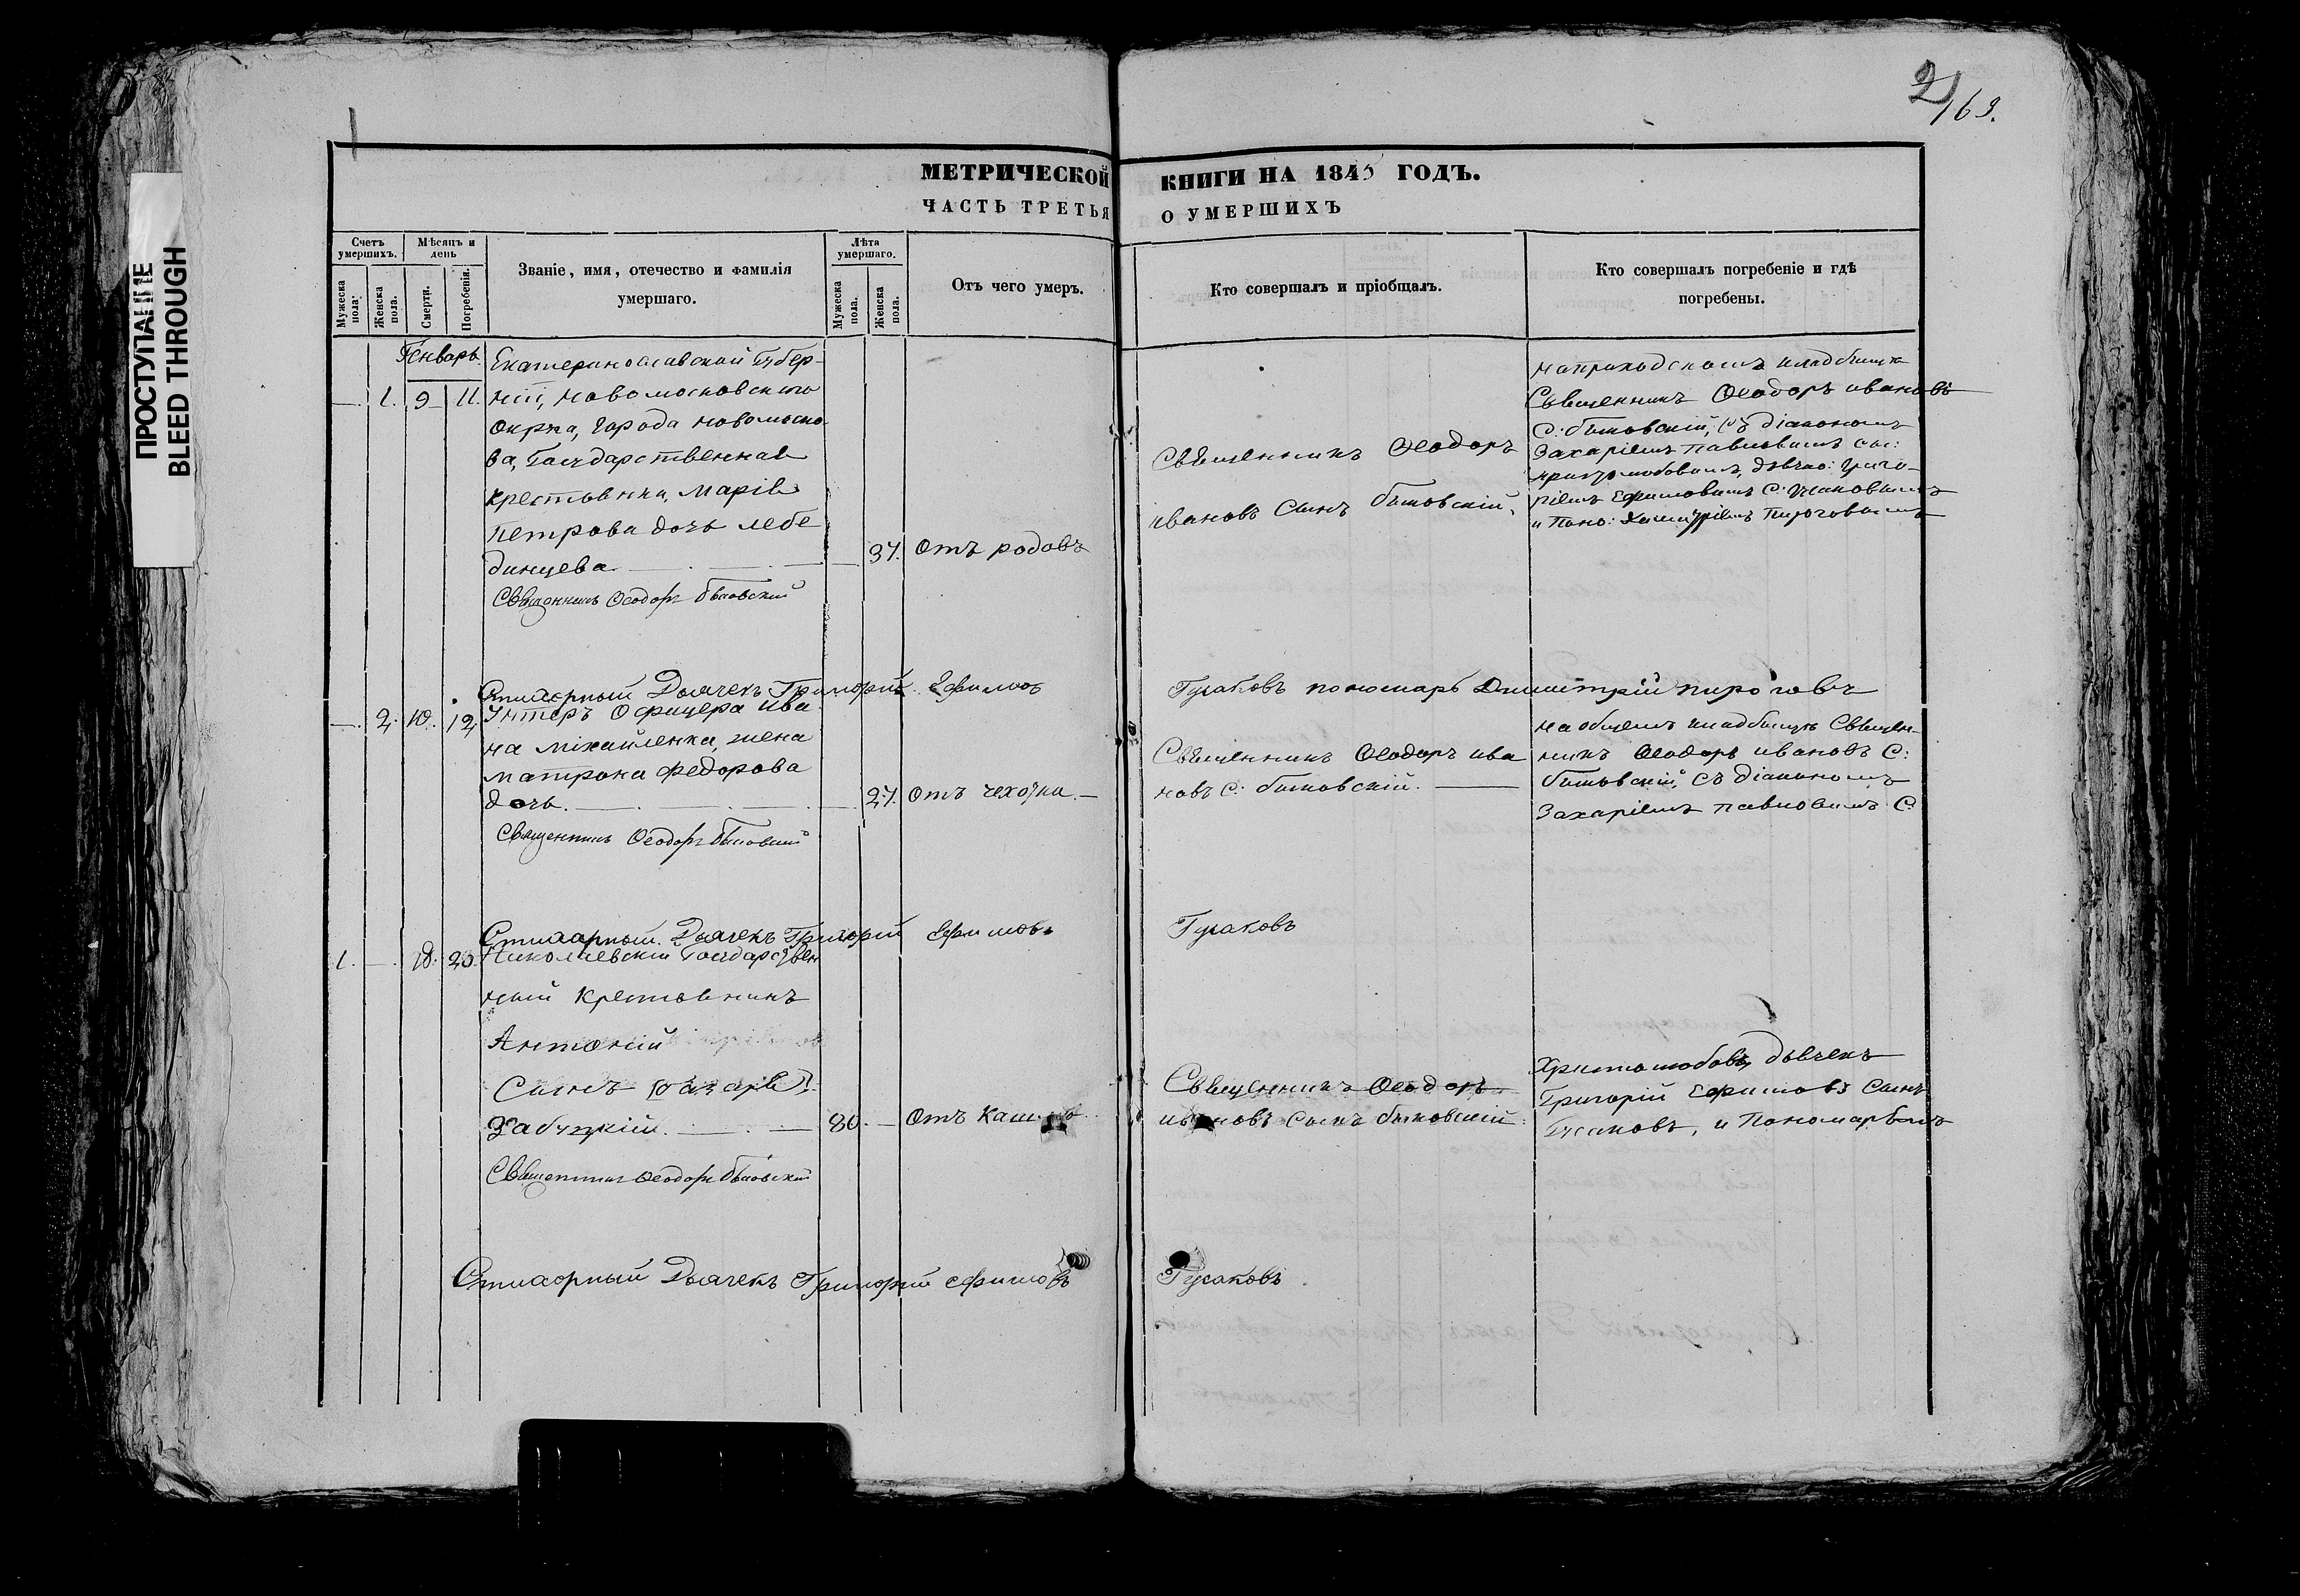 2
163.
ПРОСТУПАНИЕ
BLEED THROUGH
МЕТРИЧЕСКОЙ КНИГИ НА 1845 ГОДЪ.
ЧАСТЬ ТРЕТЬЯ О УМЕРШИХЪ
Счетъ умершихъ.
Мѣсяцъ и день
Званіе, имя, отечество и фамилія
умершаго.
Лѣта умершаго.
Отъ чего умеръ.
Кто совершалъ и пріобщалъ.
Кто совершалъ погребеніе и гдѣ
погребены.
Мужеска пола.
Женска пола.
Смерти.
Погребенія.
Мужеска пола.
Женска пола.
Генварь
1. 9 11.
Екатеринославской Губер-
ніи, Новомосковскаго
Окрга, города Новомоско
ва, Государственная
крестьянка, Марія
Петрова дочь Лебе
динцева
37. Отъ родовъ
Священникъ Ѳеодоръ Быковскій
Священникъ Ѳеодоръ
ивановъ Сынъ быковскій.
на приходскомъ кладбищѣ
Священникъ Ѳеодоръ ивановъ
С: быковскій, съ діакономъ
Захаріемъ Павловымъ
дьячко: Григо-
ріемъ Ефимовымъ С: Гусаковымъ
и Поно: Димитріемъ Пироговымъ
Стихарный Дьячекъ Григорій Ефимовъ Гусаковъ пономарь Димитрій пироговъ
2. 10. 12
Унтеръ Офицера Ива
на Міхайленка, жена
матрона Федорова
дочь.
27. Отъ чехотки.
Священникъ Ѳеодоръ Быковскій
Священникъ Ѳеодоръ ива
новъ С: быковскій.
на общемъ кладбищѣ Священ-
никъ Ѳеодоръ ивановъ С:
быковскій, съ діакономъ
Захаріемъ павловымъ С:
Стихарный Дьячекъ Григорій Ефимовъ Гусаковъ
1. 18. 20.
Николаевскій Государствен
ный Крестьянинъ
Антоній
Сынъ
Забузкій.
80. Отъ
Священникъ Ѳеодоръ Быковскій
Священникъ Ѳеодоръ
ивановъ Сынъ быковскій
Христолюбовъ, дьячекъ
Григорій Ефимовъ Сынъ
Гусаковъ, и Пономарьомъ
Стихарный Дьячекъ Григорій ефимовъ Гусаковъ